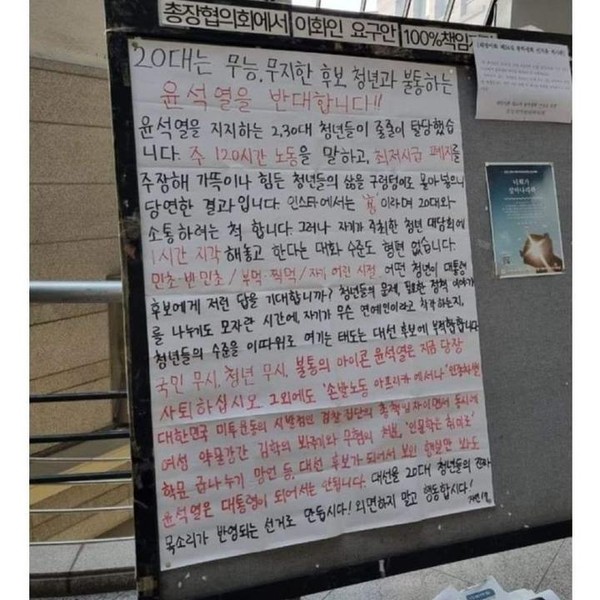 총장협의회에서 이화인 요구안 100%책임
20대는 무능, 무지한 후보 청년과 불통하는
윤석열을 반대합니다!!
윤석열을 지지하는 2,30대 청년들이 줄줄이 탈당했습
니다. 주 120시간 노동을 말하고, 최저시급 폐지를
주장해 가뜩이나 힘든 청년들의 삶을 구렁텅이로 몰아넣으니
당연한 결과입니다. 인스타에서는 이라며 20대와
소통하려는 척 합니다. 그러나 자기가 주최한 청년 대담회에
1시간 지각 해놓고 한다는 대화 수준도 형편 없습니다.
민초·반민초 / 부먹·찍먹 / 자기 어린 시절 어떤 청년이 대통령
후보에게 저런 답을 기대합니까? 청년들의 문제, 필요한 정책 이야기
를 나누기도 모자란 시간에, 자기가 무슨 연예인이라고 착각하는지,
청년들의 수준을 이따위로 여기는 태도는 대선 후보에 부적합합니다
국민 무시, 청년 무시. 불통의 아이콘 윤석열은 지금 당장
사퇴하십시오. 그외에도 '손발노동 아프리카에서나'
대한민국 미투운동의 시발점인 검찰 집단의 총책임자이면서 동시에
여성 약물강간 김학의 봐주기와 무혐의 처분,
학문 급나누기 망언 등, 대선 후보가 되어서 보인 행보만 봐도
윤석열은 대통령이 되어서는 안됩니다. 대선을 20대 청년들의 진짜
목소리가 반영되는 선거로 만듭시다! 외면하지 말고 행동합시다!